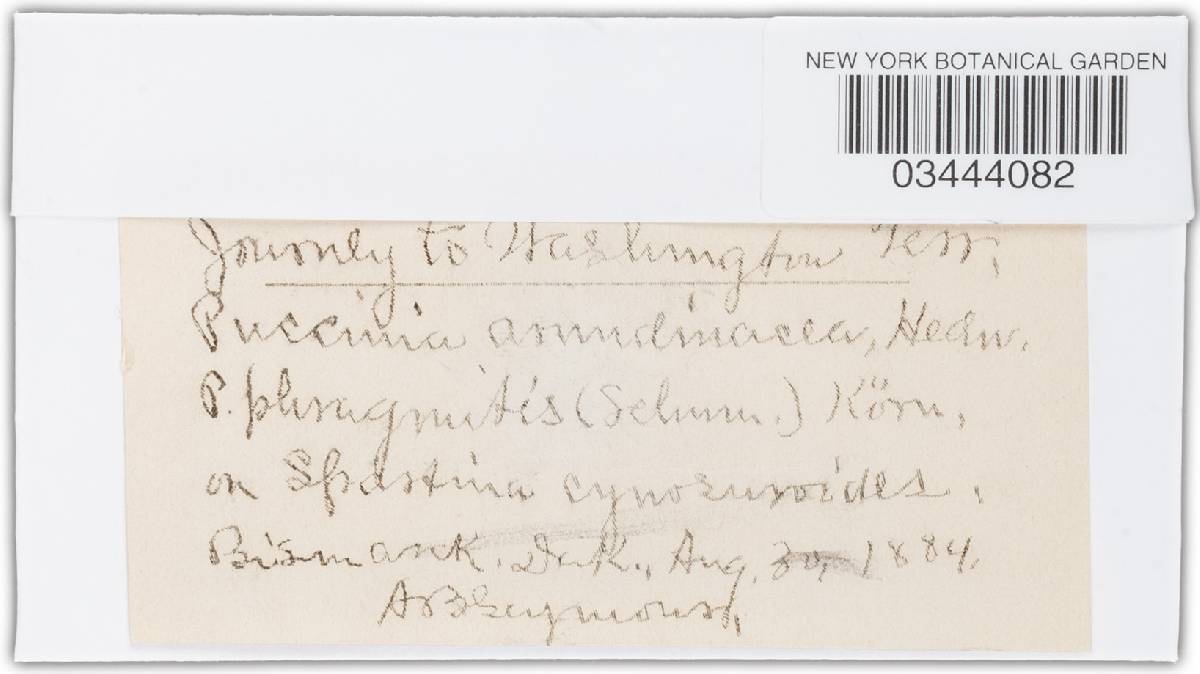 NEW YORK BOTANICAL GARDEN
03444082
Journey to Washington Terr.
Puccinia arundinacea, Hedw.
P. phragmitis (Schum.) Körn.
on Spartina cynosuroides.
Bismarck, Dak., Aug. 30, 1884.
A B Seymour.